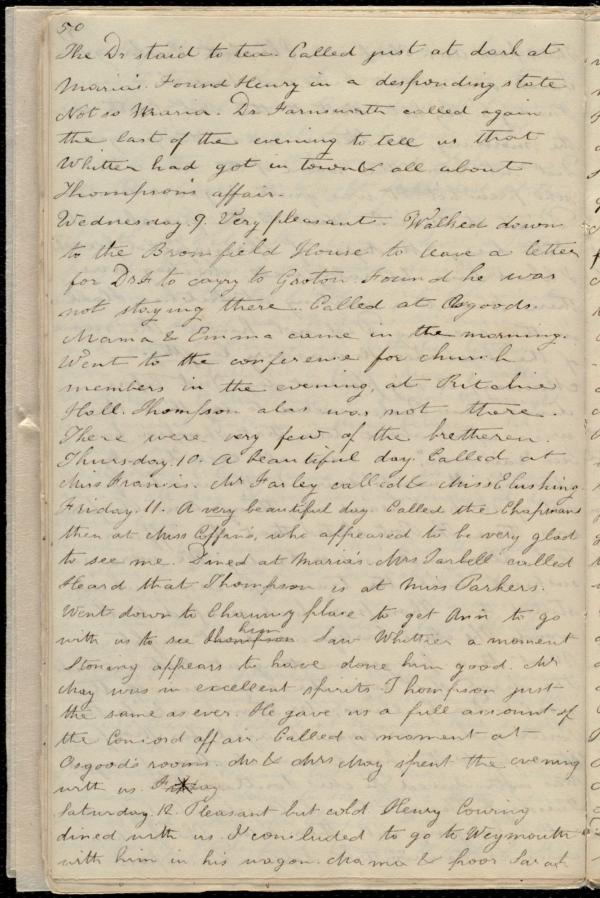 50
The Dr staid to tea. Called just at dark at
Maria's. Found Henry in a desponding state
Not so Maria. Dr Farnsworth called again
the last of the evening to tell us that
Whittier had got in town & all about
Thompson's affair.
Wednesday. 9. Very pleasant. Walked down
to the Bromfield House to leave a letter
for Dr F to carry to Groton. Found he was
not staying there. Called at Osgoods.
Mama & Emma came in the morning.
Went to the conference for church
members in the evening, at Ritchie
Hall. Thompson alas was not there.
There were very few of the bretheren.
Thursday. 10. A beautiful day. Called at
Miss Francis. Mr Farley called & Miss E Cushing.
Friday. 11. A very beautiful day. Called the Chapmans
then at Miss Coffin's, who appeared to be very glad
to see me. Dined at Maria's. Mrs Tarbell called
Heard that Thompson is at Miss Parkers.
Went down to Chauncy place to get Ann to go
with us to see Thompson him Saw Whittier a moment
Stoning appears to have done him good. Mr
May was in excellent spirits Thompson just
the same as ever. He gave us a full account of
the Concord affair. Called a moment at
Osgood's rooms. Mr & Mrs May spent the evening
with us.
Saturday. 12. Pleasant but cold Henry Cowing
dined with us. I concluded to go to Weymouth
with him in his wagon. Mama & poor Sarah